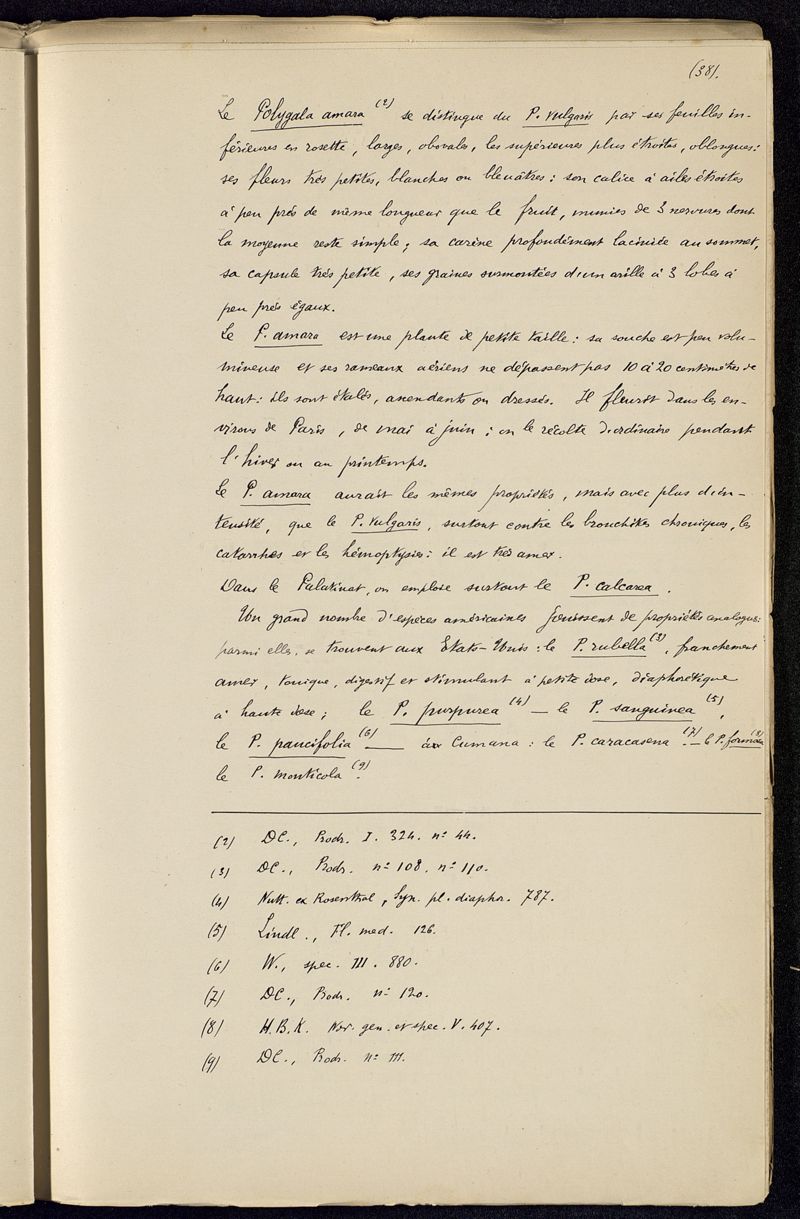 (38).
Le Polygala amara (2) se distingue du P. vulgaris par ses feuilles in-
férieures en rosette, larges, obovales, les supérieures plus étroites, oblongues:
ses fleurs très petites, blanches ou bleuâtres: son calice à ailes étroites
à peu près de même longueur que le fruit, munies de 3 nervures dont
la moyenne reste simple; sa carène profondément laciniée au sommet,
sa capsule très petite, ses graines surmontées d'un arille à 3 lobes à
peu près égaux.
Le P. amara est une plante de petite taille: sa souche est peu volu-
mineuse et ses rameaux aériens ne dépassent pas 10 à 20 centimètres de
haut: ils sont étalés, ascendants ou dressés. Il fleurit dans les en-
virons de Paris, de mai à juin; on le récolte d'ordinaire pendant
l'hiver ou au printemps.
Le P. amara aurait les mêmes propriétés, mais avec plus d'in-
tensité, que le P. vulgaris, surtout contre les bronchites chroniques, les
catarrhes et les hémoptysies: il est très amer.
Dans le Palatinat, on emploie surtout le P. calcarea.
Un grand nombre d'espèces américaines jouissent de propriétés analogues:
parmi elles, se trouvent aux Etats-Unis: le P. rubella (3), franchement
amer, tonique, digestif et stimulant à petite dose, diaphorétique
à haute dose; le P. purpurea (4) — le P. sanguinea (5),
le P. paucifolia (6) — aux Cumana: le P. caracasena (7) — le P. formosa (8)
le P. monticola (9).
(2) DC., Prodr. I. 324. nº 44.
(3) DC., Prodr. nº 108. nº 110.
(4) Nutt. ex Rosenthal, Syn. pl. diaphor. 787.
(5) Lindl., Fl. med. 126.
(6) W., spec. III. 880.
(7) DC., Prodr. nº 120.
(8) H.B.K. Nov. gen. et spec. V. 407.
(9) DC., Prodr. nº 111.